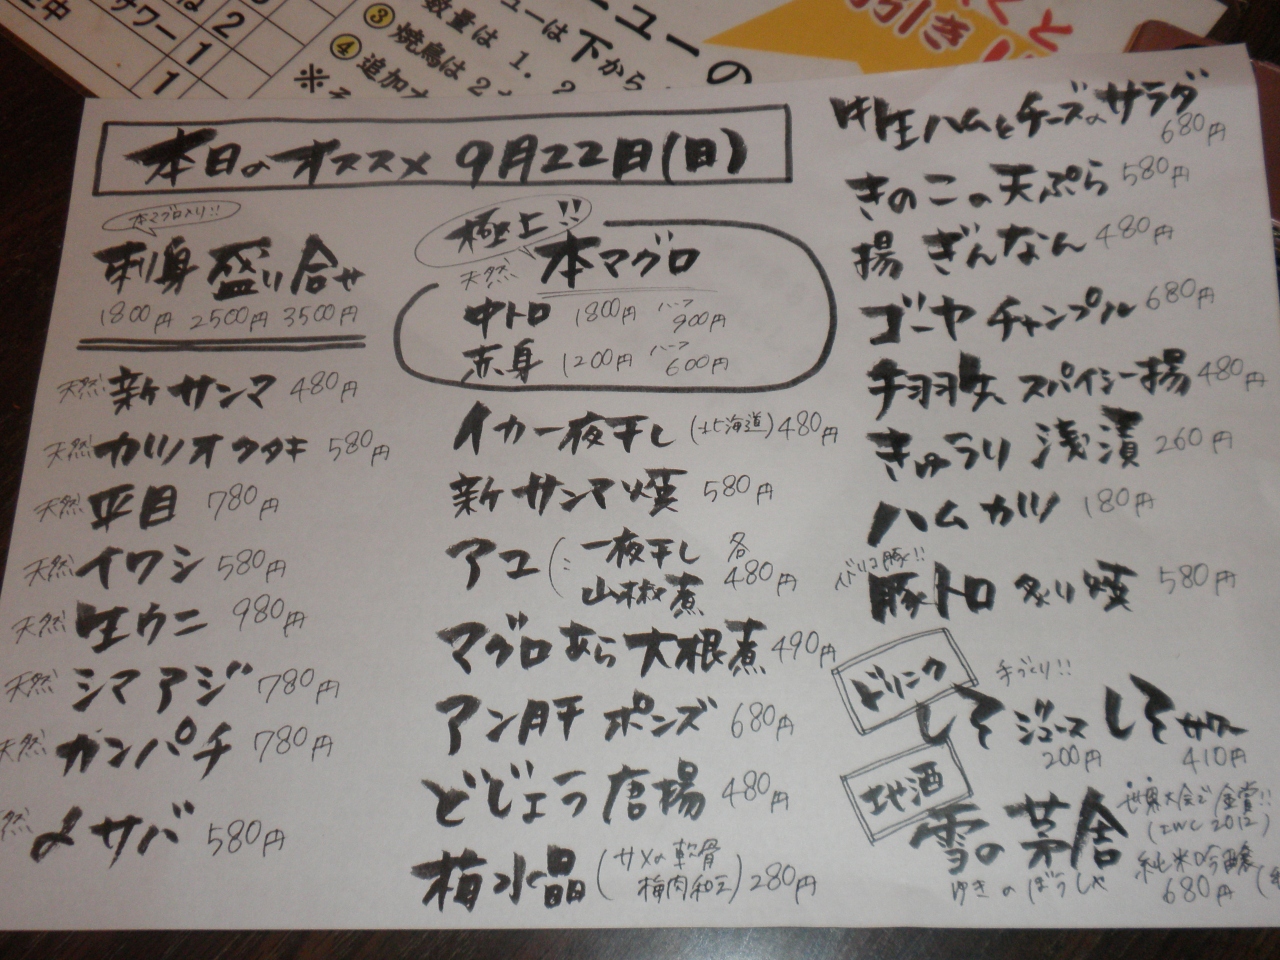 サワー 2
中 1
1
ューの
③ 数量は 1. 2
④ 焼鳥は 2
追加
は下から
※
引き
本日のオススメ 9月22日(日)
本マグロ入り!!
刺身 盛り合せ
1800円 2500円 3500円
天然 新サンマ 480円
天然 カツオタタキ 580円
天然 平目 780円
天然 イワシ 580円
天然 生ウニ 980円
天然 シマアジ 780円
天然 カンパチ 780円
然 〆サバ 580円
極上!!
天然 本マグロ
中トロ 1800円 ハーフ 900円
赤身 1200円 ハーフ 600円
イカ一夜干し (北海道) 480円
新サンマ焼 580円
アユ (一夜干し 各
山椒煮 480円
マグロあら大根煮 490円
アン肝ポンズ 680円
どじょう唐揚 480円
梅水晶 (サメの軟骨
梅肉和え) 280円
生ハムとチーズのサラダ
680円
きのこの天ぷら 580円
揚ぎんなん 480円
ゴーヤチャンプル 680円
手羽先スパイシー揚 480円
きゅうり浅漬 260円
ハムカツ 180円
イベリコ豚!!
豚トロ炙り焼 580円
ドリンク
手づくり!!
しそジュース 200円
しそサワー 410円
地酒
雪の茅舎
ゆきのぼうしゃ
世界大会で金賞!!
(IWC 2012)
純米吟醸
680円